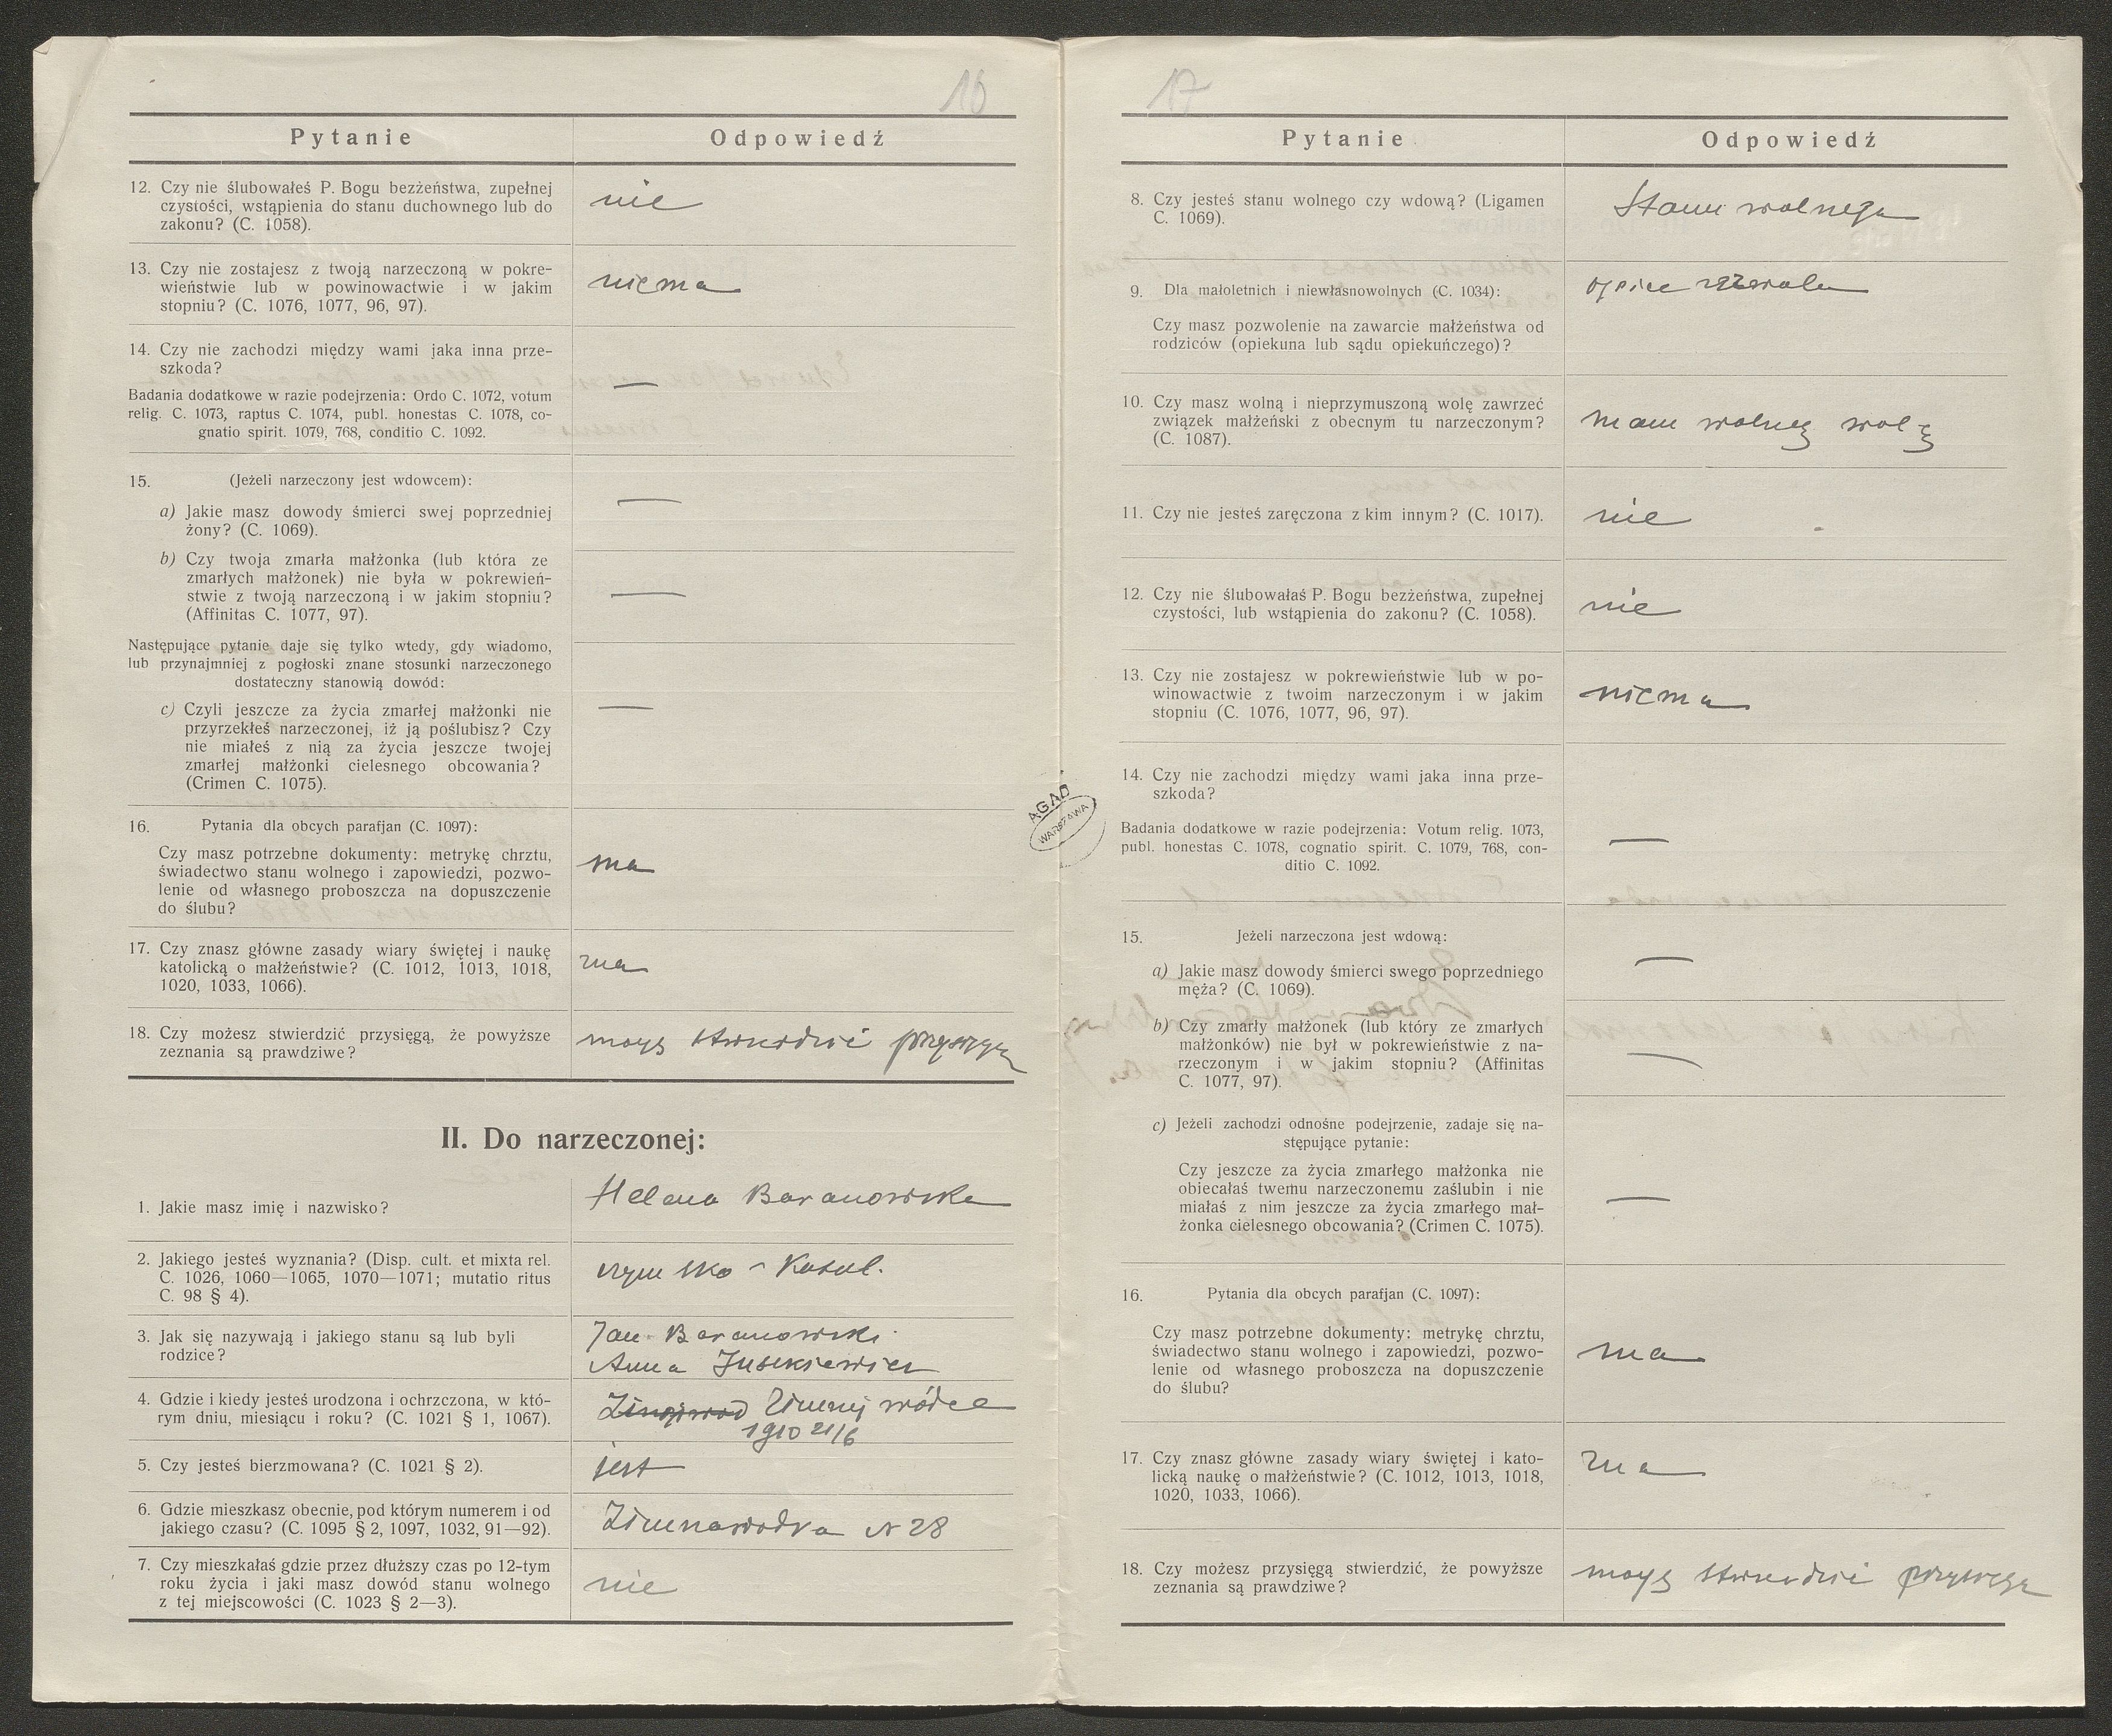 16
Pytanie
Odpowiedź
12. Czy nie ślubowałeś P. Bogu bezżeństwa, zupełnej
czystości, wstąpienia do stanu duchownego lub do
zakonu? (C. 1058).
nie
13. Czy nie zostajesz z twoją narzeczoną w pokre-
wieństwie lub w powinowactwie i w jakim
stopniu? (C. 1076, 1077, 96, 97).
niema
14. Czy nie zachodzi między wami jaka inna prze-
szkoda?
—
Badania dodatkowe w razie podejrzenia: Ordo C. 1072, votum
relig. C. 1073, raptus C. 1074, publ. honestas C. 1078, co-
gnatio spirit. 1079, 768, conditio C. 1092.
15. (Jeżeli narzeczony jest wdowcem):
a) Jakie masz dowody śmierci swej poprzedniej
żony? (C. 1069).
—
b) Czy twoja zmarła małżonka (lub która ze
zmarłych małżonek) nie była w pokrewień-
stwie z twoją narzeczoną i w jakim stopniu?
(Affinitas C. 1077, 97).
—
Następujące pytanie daje się tylko wtedy, gdy wiadomo,
lub przynajmniej z pogłoski znane stosunki narzeczonego
dostateczny stanowią dowód:
c) Czyli jeszcze za życia zmarłej małżonki nie
przyrzekłeś narzeczonej, iż ją poślubisz? Czy
nie miałeś z nią za życia jeszcze twojej
zmarłej małżonki cielesnego obcowania?
(Crimen C. 1075).
—
16. Pytania dla obcych parafjan (C. 1097):
Czy masz potrzebne dokumenty: metrykę chrztu,
świadectwo stanu wolnego i zapowiedzi, pozwo-
lenie od własnego proboszcza na dopuszczenie
do ślubu?
ma
17. Czy znasz główne zasady wiary świętej i naukę
katolicką o małżeństwie? (C. 1012, 1013, 1018,
1020, 1033, 1066).
zna
18. Czy możesz stwierdzić przysięgą, że powyższe
zeznania są prawdziwe?
mogę stwierdzić przysięgą
II. Do narzeczonej:
1. Jakie masz imię i nazwisko?
Helena Baranowska
2. Jakiego jesteś wyznania? (Disp. cult. et mixta rel.
C. 1026, 1060—1065, 1070—1071; mutatio ritus
C. 98 § 4).
rzymsko-katol.
3. Jak się nazywają i jakiego stanu są lub byli
rodzice?
Jan Baranowski
Anna
4. Gdzie i kiedy jesteś urodzona i ochrzczona, w któ-
rym dniu, miesiącu i roku? (C. 1021 § 1, 1067).
Zimnej wódce
1910 21/6
5. Czy jesteś bierzmowana? (C. 1021 § 2).
jest
6. Gdzie mieszkasz obecnie, pod którym numerem i od
jakiego czasu? (C. 1095 § 2, 1097, 1032, 91—92).
Zimnawodka N 28
7. Czy mieszkałaś gdzie przez dłuższy czas po 12-tym
roku życia i jaki masz dowód stanu wolnego
z tej miejscowości (C. 1023 § 2—3).
nie
AGAD
WARSZAWA
17
Pytanie
Odpowiedź
8. Czy jesteś stanu wolnego czy wdową? (Ligamen
C. 1069).
Stanu wolnego
9. Dla małoletnich i niewłasnowolnych (C. 1034):
Czy masz pozwolenie na zawarcie małżeństwa od
rodziców (opiekuna lub sądu opiekuńczego)?
10. Czy masz wolną i nieprzymuszoną wolę zawrzeć
związek małżeński z obecnym tu narzeczonym?
(C. 1087).
mam wolną wolę
11. Czy nie jesteś zaręczona z kim innym? (C. 1017).
nie
12. Czy nie ślubowałaś P. Bogu bezżeństwa, zupełnej
czystości, lub wstąpienia do zakonu? (C. 1058).
nie
13. Czy nie zostajesz w pokrewieństwie lub w po-
winowactwie z twoim narzeczonym i w jakim
stopniu (C. 1076, 1077, 96, 97).
niema
14. Czy nie zachodzi między wami jaka inna prze-
szkoda?
Badania dodatkowe w razie podejrzenia: Votum relig. 1073,
publ. honestas C. 1078, cognatio spirit. C. 1079, 768, con-
ditio C. 1092.
—
15. Jeżeli narzeczona jest wdową:
a) Jakie masz dowody śmierci swego poprzedniego
męża? (C. 1069).
—
b) Czy zmarły małżonek (lub który ze zmarłych
małżonków) nie był w pokrewieństwie z na-
rzeczonym i w jakim stopniu? (Affinitas
C. 1077, 97).
—
c) Jeżeli zachodzi odnośne podejrzenie, zadaje się na-
stępujące pytanie:
Czy jeszcze za życia zmarłego małżonka nie
obiecałaś twemu narzeczonemu zaślubin i nie
miałaś z nim jeszcze za życia zmarłego mał-
żonka cielesnego obcowania? (Crimen C. 1075).
—
16. Pytania dla obcych parafjan (C. 1097):
Czy masz potrzebne dokumenty: metrykę chrztu,
świadectwo stanu wolnego i zapowiedzi, pozwo-
lenie od własnego proboszcza na dopuszczenie
do ślubu?
ma
17. Czy znasz główne zasady wiary świętej i kato-
licką naukę o małżeństwie? (C. 1012, 1013, 1018,
1020, 1033, 1066).
zna
18. Czy możesz przysięgą stwierdzić, że powyższe
zeznania są prawdziwe?
mogę stwierdzić przysięgą